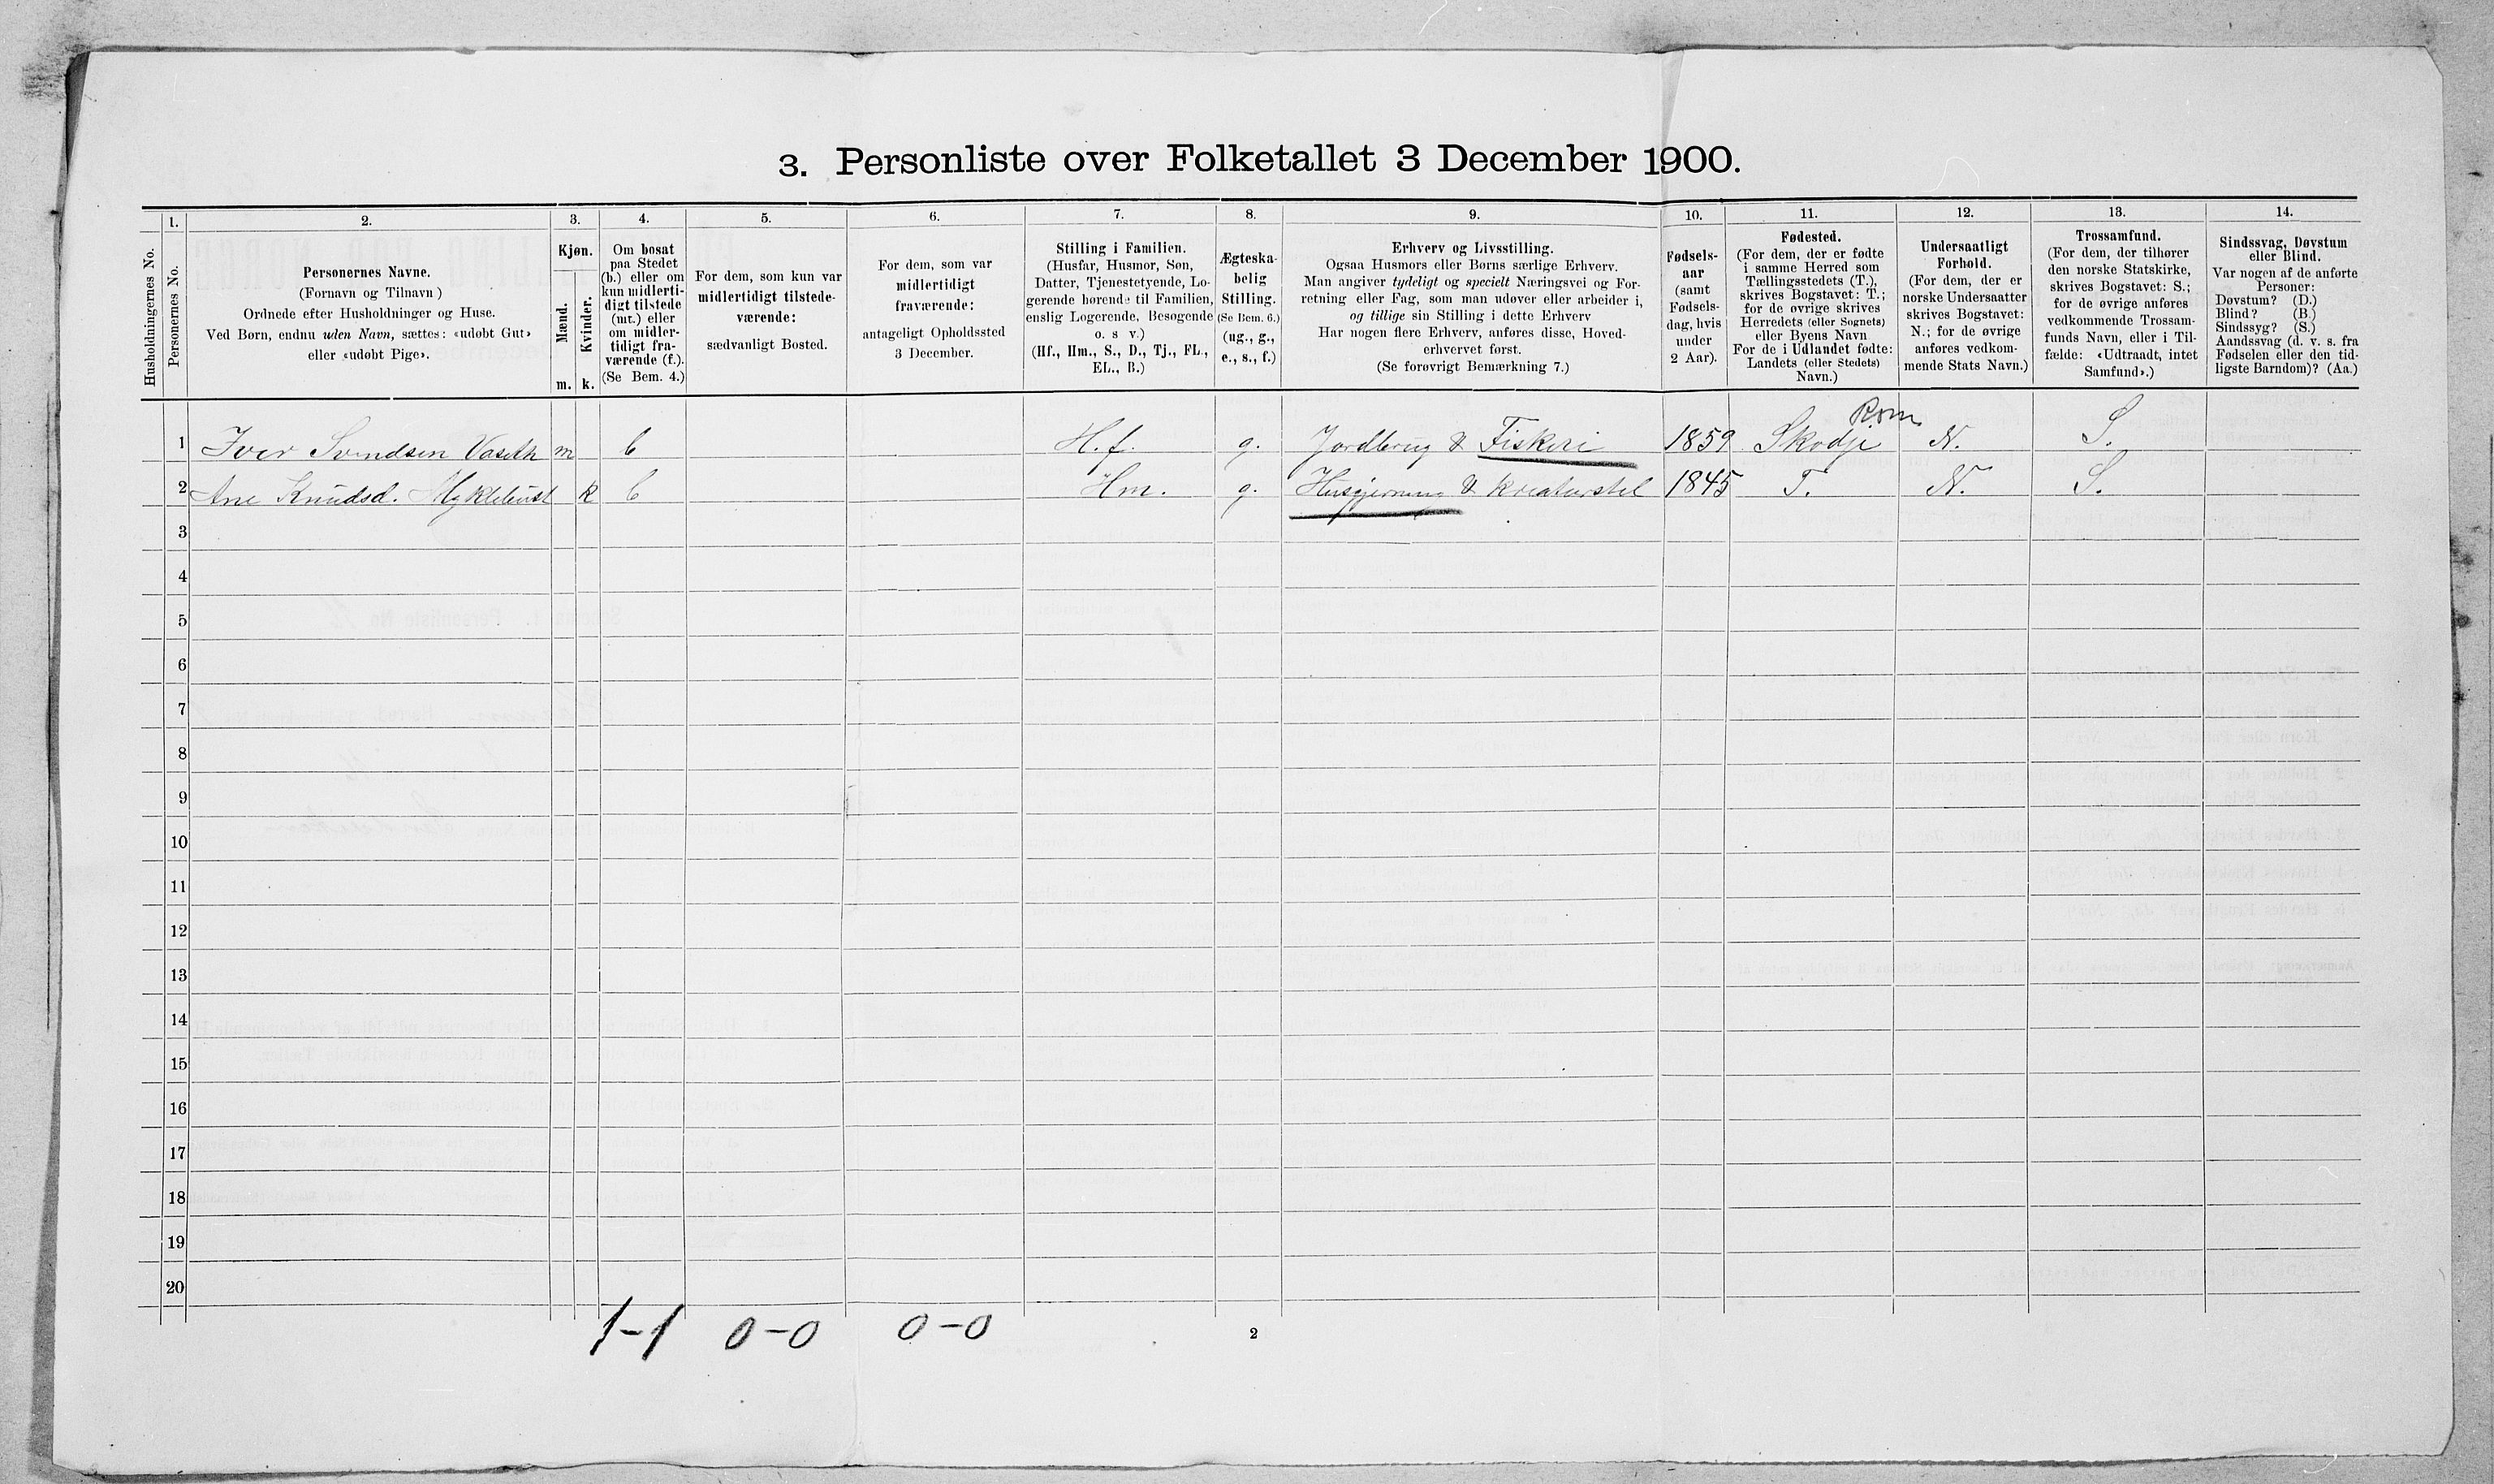 3. Personliste over Folketallet 3 December 1900.
1. 2. 3. 4. 5. 6. 7. 8. 9. 10. 11. 12. 13. 14.
Husholdningernes No.
Personernes No.
Personernes Navne.
(Fornavn og Tilnavn)
Ordnede efter Husholdninger og Huse.
Ved Børn, endnu uden Navn, sættes: «udøbt Gut»
eller «udøbt Pige».
Kjøn.
Mænd.
m.
Kvinder.
k.
Om bosat
paa Stedet
(b.) eller om
kun midlerti-
digt tilstede
(mt.) eller
om midler-
tidigt fra-
værende (f.).
(Se Bem. 4.)
For dem, som kun var
midlertidigt tilstede-
værende:
sædvanligt Bosted.
For dem, som var
midlertidigt
fraværende:
antageligt Opholdssted
3 December.
Stilling i Familien.
(Husfar, Husmor, Søn,
Datter, Tjenestetyende, Lo-
gerende hørende til Familien,
enslig Logerende, Besøgende
o. s v.)
(Hf., Hm., S., D., Tj., FL.,
EL., B.)
Ægteska-
belig
Stilling.
(Se Bem. 6.)
(ug., g.,
e., s., f.)
Erhverv og Livsstilling.
Ogsaa Husmors eller Børns særlige Erhverv.
Man angiver tydeligt og specielt Næringsvei og For-
retning eller Fag, som man udøver eller arbeider i,
og tillige sin Stilling i dette Erhverv
Har nogen flere Erhverv, anføres disse, Hoved-
erhvervet først.
(Se forøvrigt Bemærkning 7.)
Fødsels-
aar
(samt
Fødsels-
dag, hvis
under
2 Aar).
Fødested.
(For dem, der er fødte
i samme Herred som
Tællingsstedets (T.),
skrives Bogstavet: T.;
for de øvrige skrives
Herredets (eller Sognets)
eller Byens Navn
For de i Udlandet fødte:
Landets (eller Stedets)
Navn.)
Undersaatligt
Forhold.
(For dem, der er
norske Undersaatter
skrives Bogstavet:
N.; for de øvrige
anføres vedkom-
mende Stats Navn.)
Trossamfund.
(For dem, der tilhører
den norske Statskirke,
skrives Bogstavet: S.;
for de øvrige anføres
vedkommende Trossam-
funds Navn, eller i Til-
fælde: «Udtraadt, intet
Samfund».)
Sindssvag, Døvstum
eller Blind.
Var nogen af de anførte
Personer:
Døvstum? (D.)
Blind? (B.)
Sindssyg? (S.)
Aandssvag (d. v. s. fra
Fødselen eller den tid-
ligste Barndom)? (Aa.)
Rom
1 Iver Svendsen Vaseth m b H.f. g. Jordbrug & Fiskeri 1859 Skodje N. S.
2 Ane Knudsd. Myklebust k b Hm. g. Husgjerning & Kreaturstel 1845 T. N. S.
3
4
5
6
7
8
9
10
11
12
13
14
15
16
17
18
19
20
1-1 0-0 0-0
2